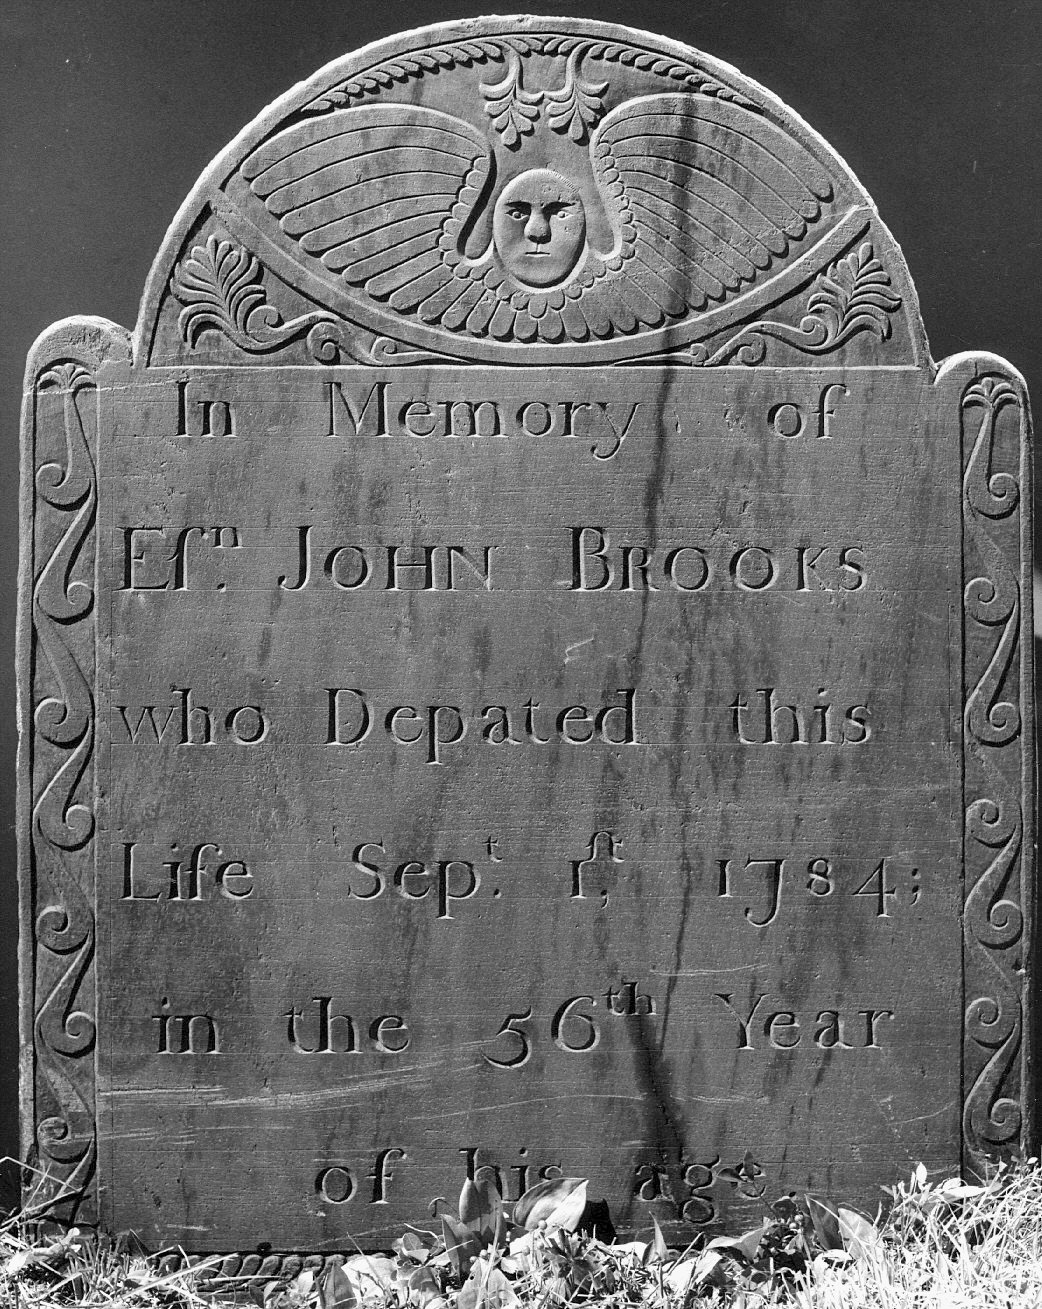 In Memory of
Eſⁿ. JOHN BROOKS
who Depated this
Life Sepᵗ. 1ſᵗ, 1784;
in the 56ᵗʰ Year
of his age